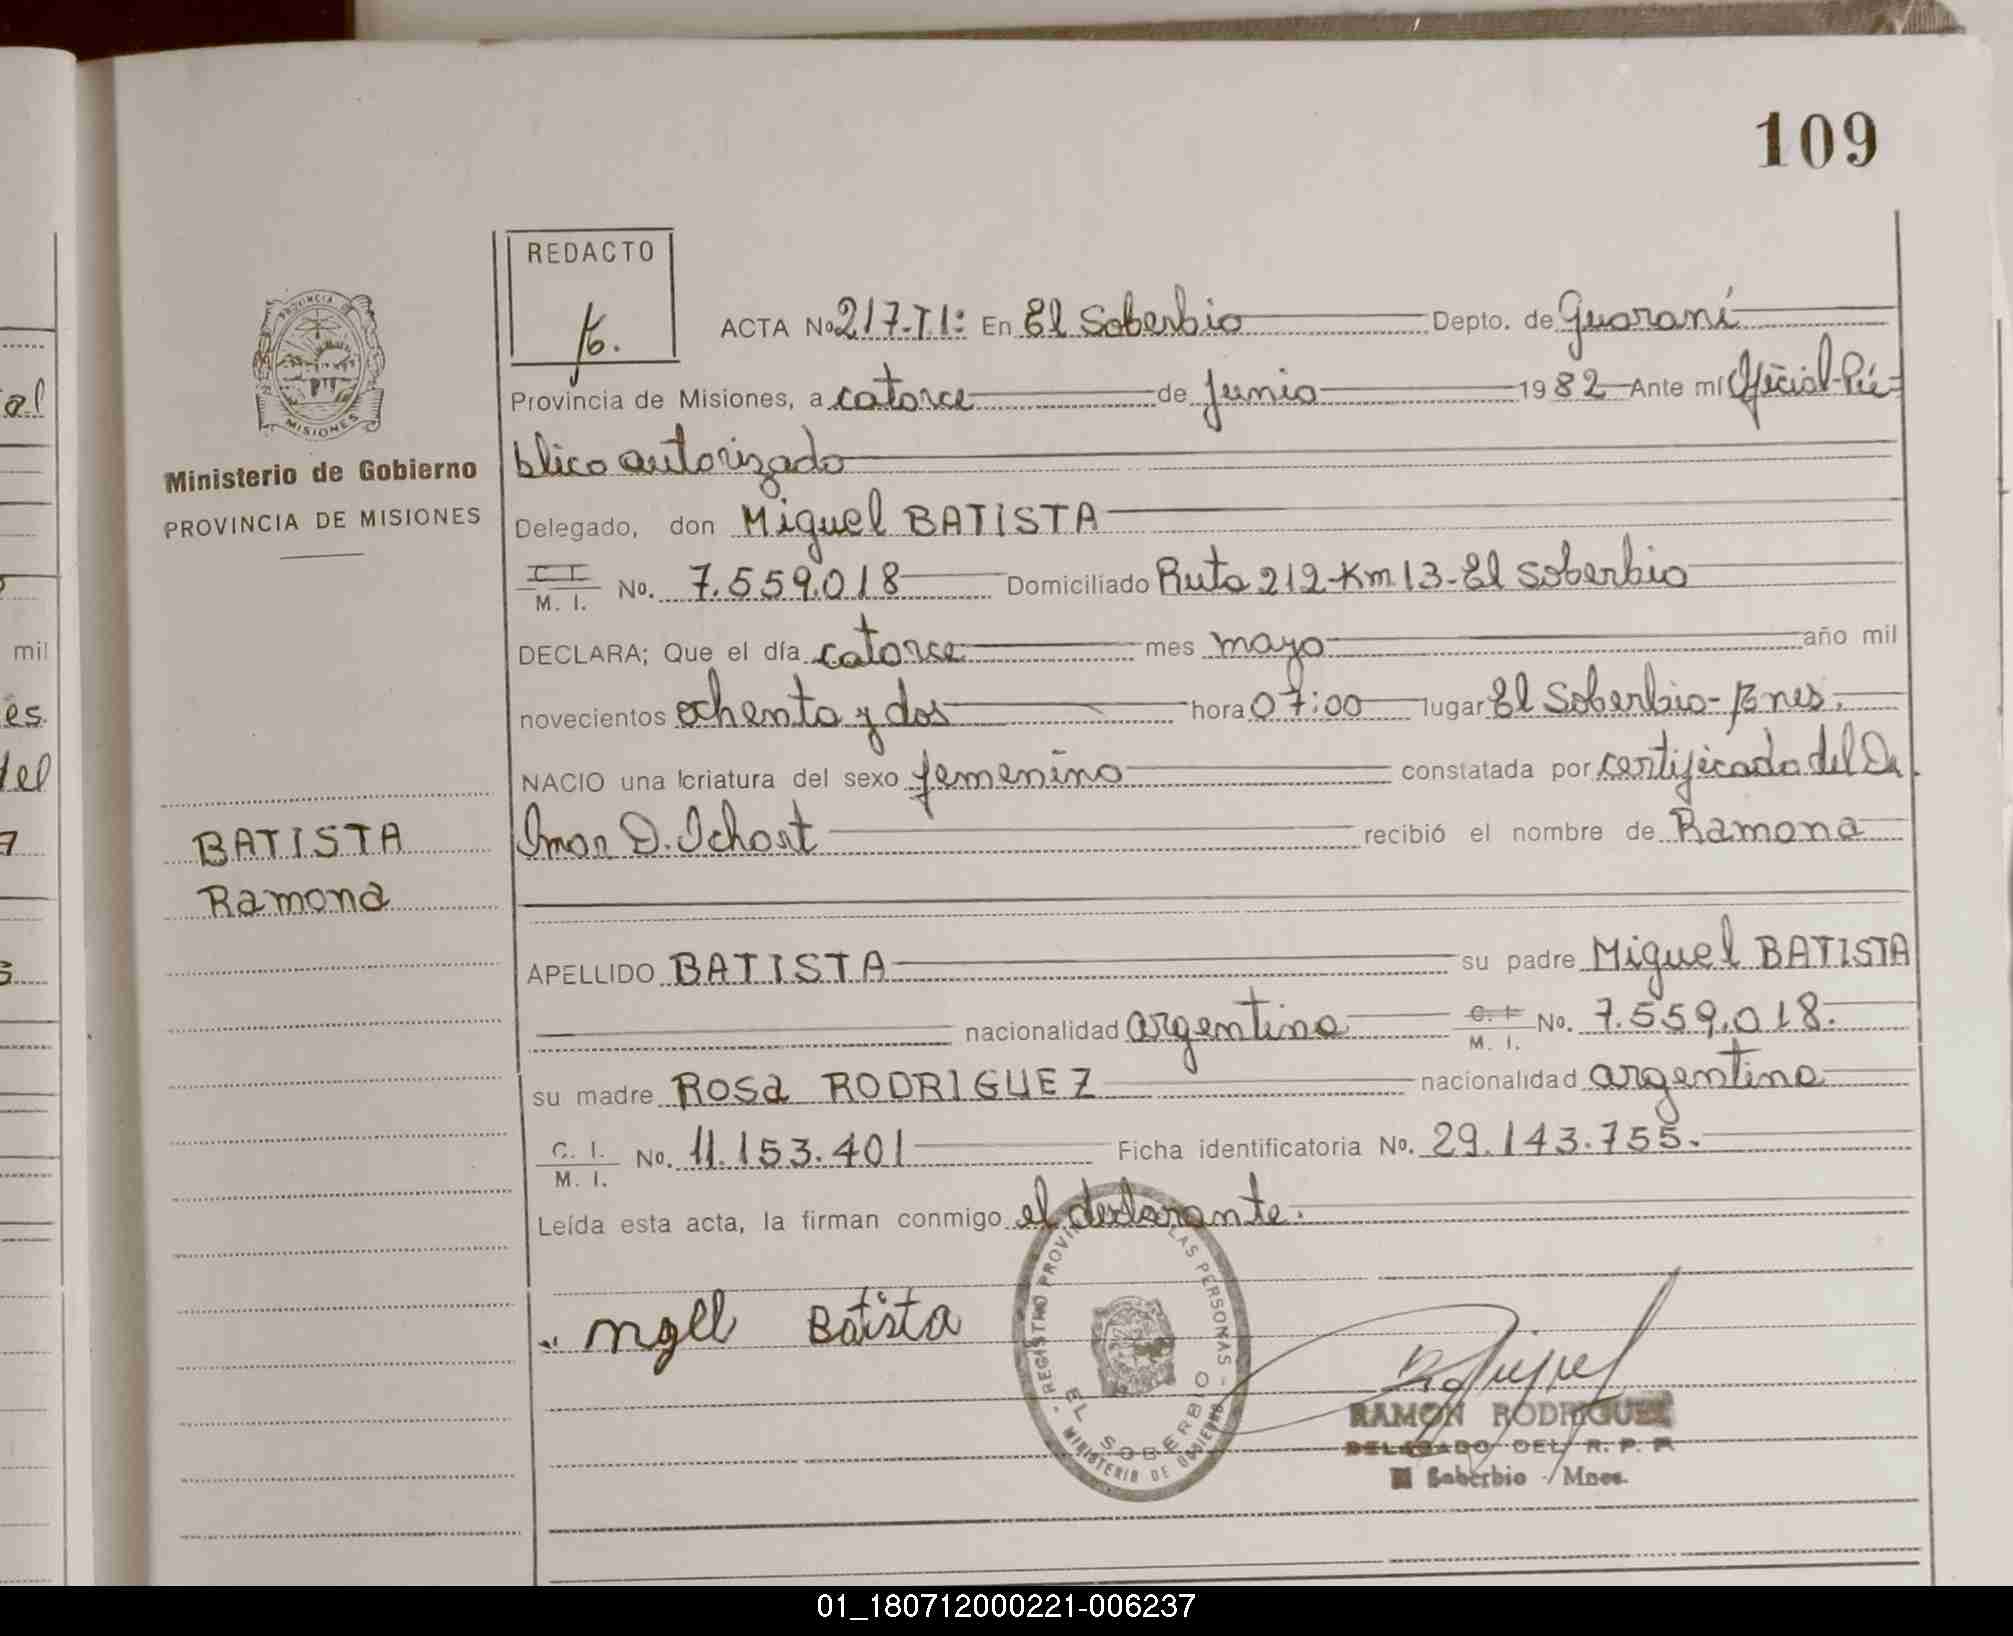 109
REDACTO
ACTA No 217-TI: En El Soberbio Depto. de Guaraní
Provincia de Misiones, a catorce de Junio 1982 Ante mí Oficial Pú=
blico autorizado
Ministerio de Gobierno
PROVINCIA DE MISIONES
Delegado, don Miguel BATISTA
C. I.
M. I. No. 7.559.018 Domiciliado Ruta 212-Km 13-El Soberbio
DECLARA; Que el día catorce mes mayo año mil
novecientos ochenta y dos hora 07:00 lugar El Soberbio-Mnes.
NACIO una criatura del sexo femenino constatada por certificado del Dr.
BATISTA
Ramona
Omar D. recibió el nombre de Ramona
APELLIDO BATISTA su padre Miguel BATISTA
nacionalidad argentina C. I.
M. I. No. 7.559.018.
su madre Rosa RODRIGUEZ nacionalidad argentina
C. I.
M. I. No. 11.153.401 Ficha identificatoria No. 29.143.755.
Leída esta acta, la firman conmigo el declarante.
REGISTRO PROVIN LAS PERSONAS
EL SOBERBIO
MINISTERIO DE GOBIERNO
Batista
RAMON RODRIGUEZ
DELEGADO DEL R. P. P.
El Soberbio - Mnes.
PROVINCIA
MISIONES
al
mil
es.
del
01_180712000221-006237